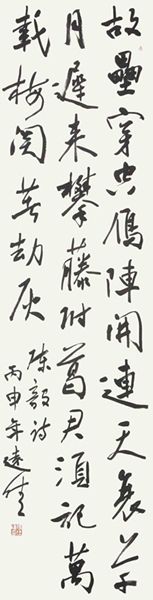 故壘穿空雁陣開連天衰草
月遲來攀藤附葛君須記萬
載梅関著劫灰
陳毅詩
丙申年遠